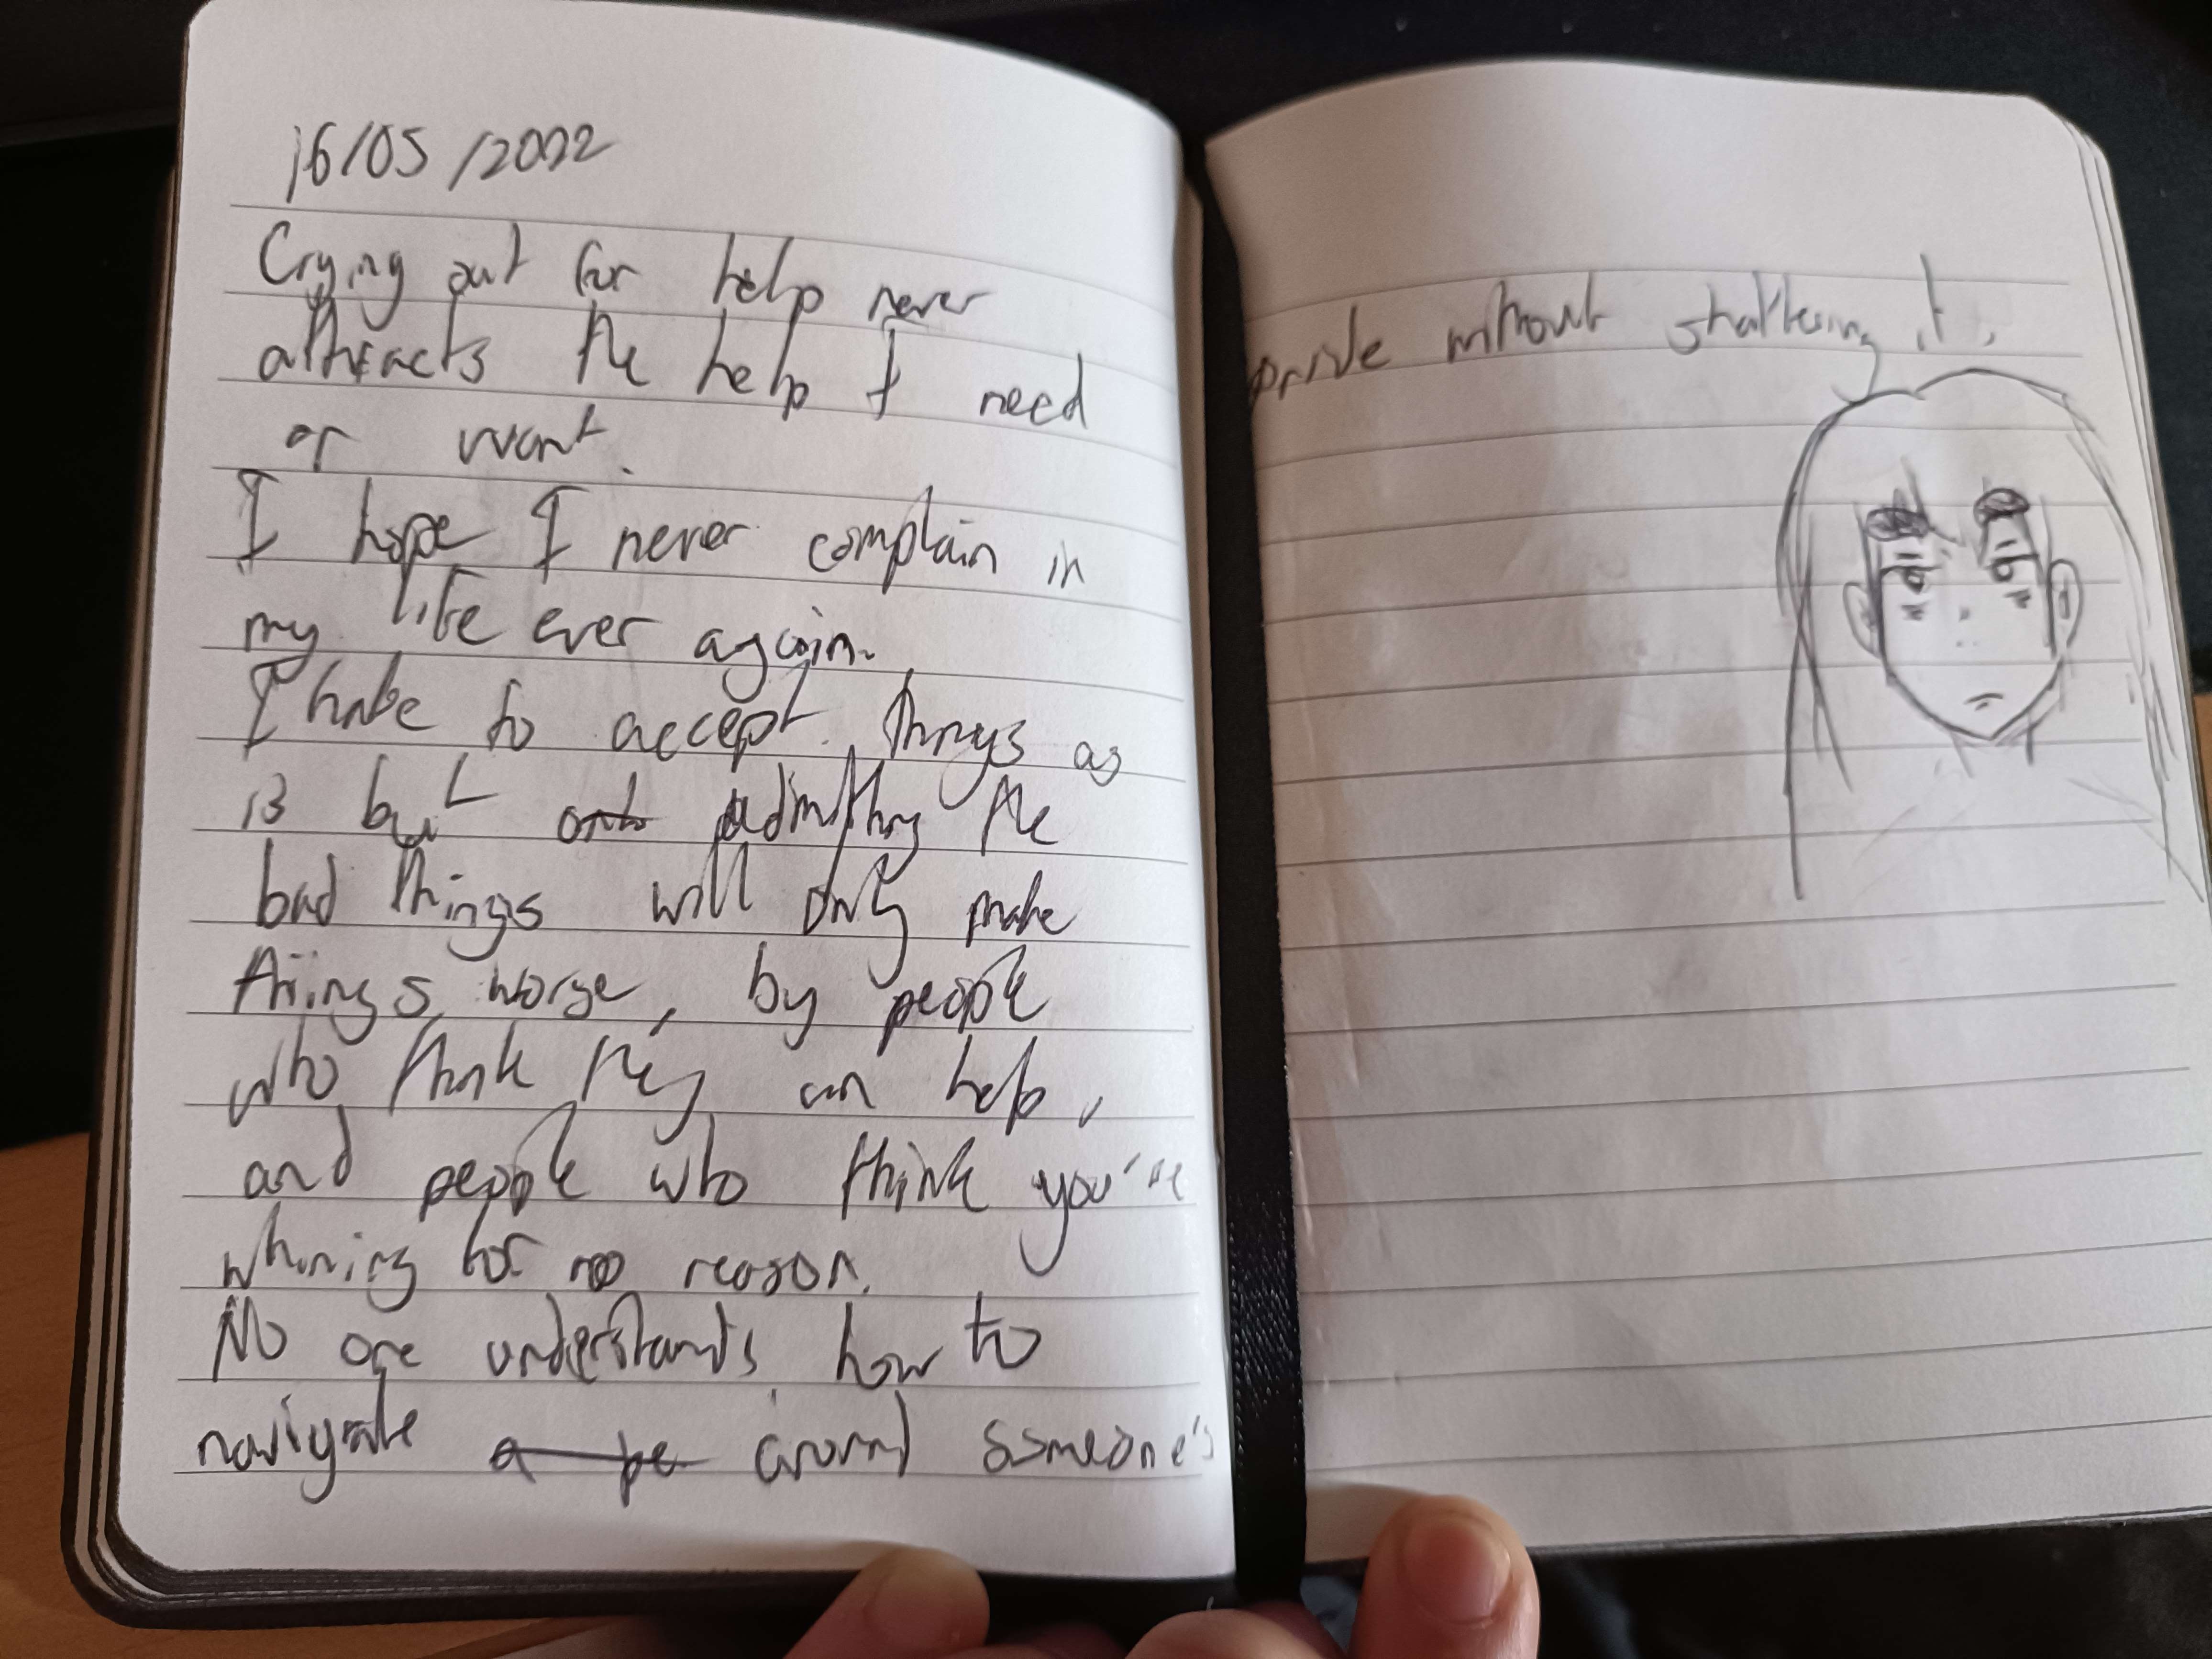 16/05/2022
Crying out for help never
attracts the help I need
or want.
I hope I never complain in
my life ever again.
I hate to accept things as
is but admitting the
bad things will only make
things worse, by people
who think they can help,
and people who think you're
whining for no reason.
No one understands how to
navigate a pe around someone's
pride without shattering it.